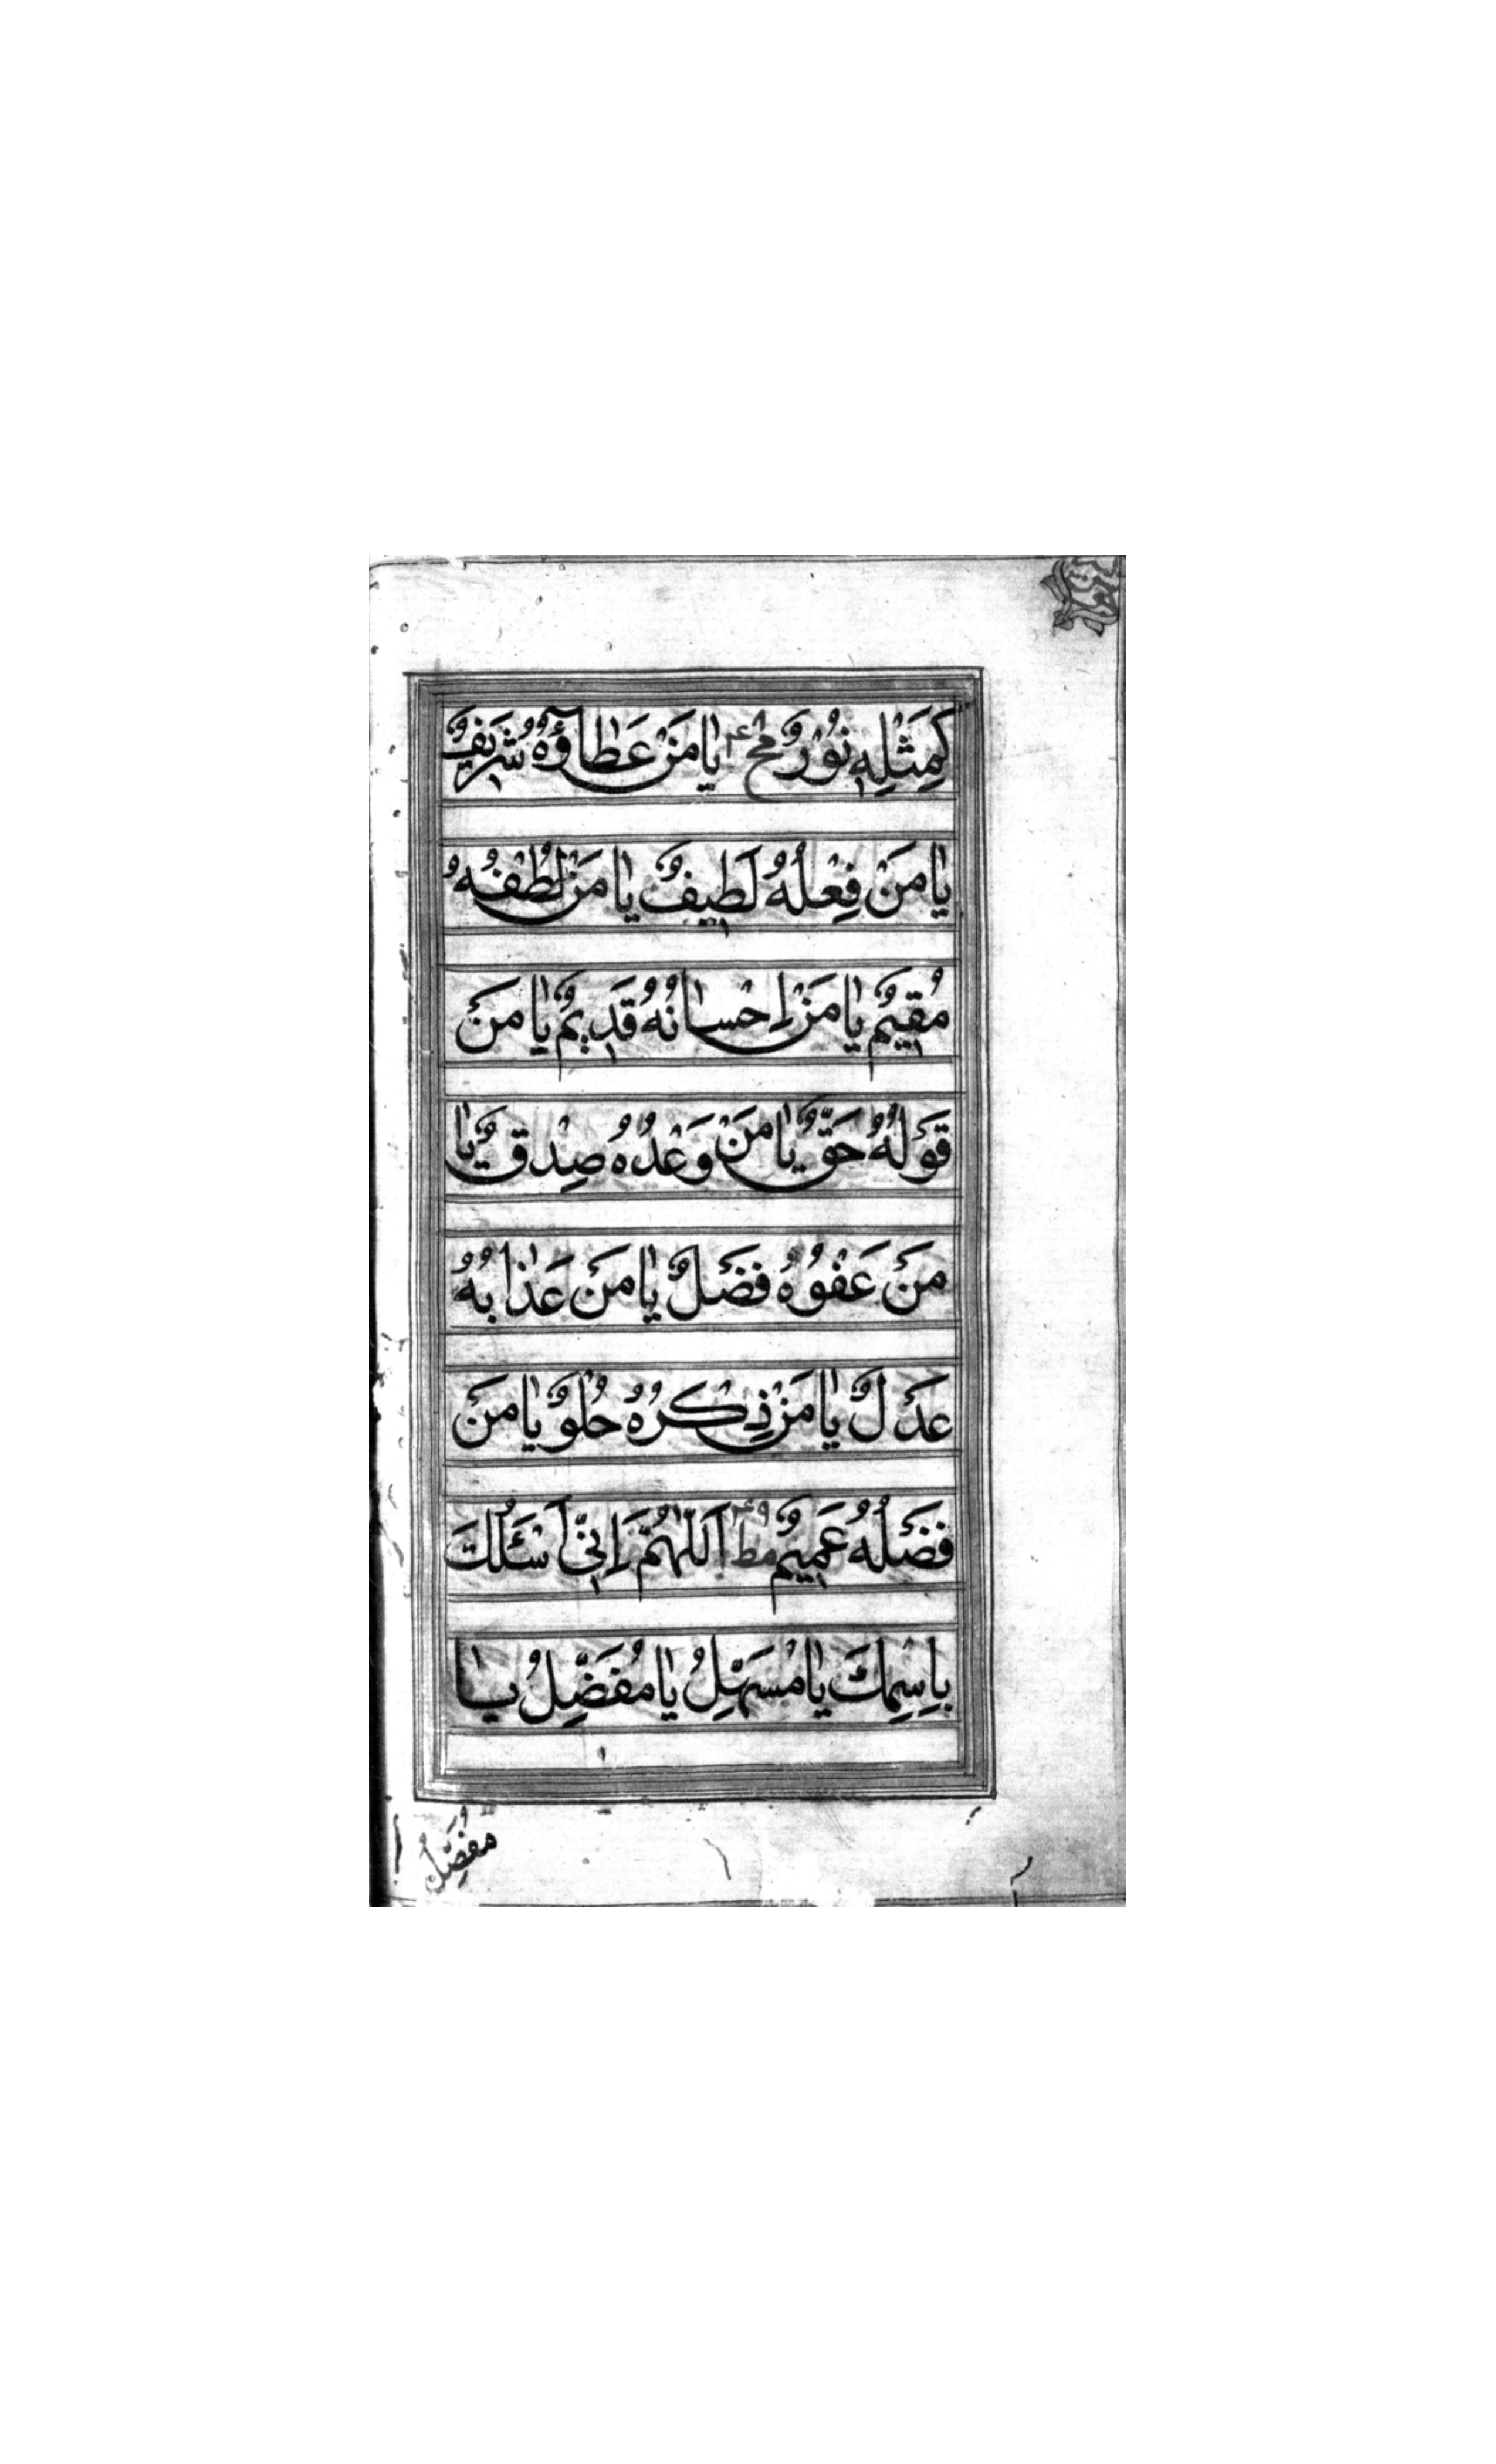 كَمِثْلِهِ نُوْرٌ مح ۴۸ يٰا مَنْ عَطٰاۤؤُهُ شَرِيْفٌ
يٰا مَنْ فِعْلُهُ لَطِيفٌ يٰا مَنْ لُطْفُهُ
مُقِيمٌ يٰا مَنْ اِحْسٰانُهُ قَدِيمٌ يٰا مَنْ
قَوْلُهُ حَقٌّ يٰا مَنْ وَعْدُهُ صِدْقٌ يٰا
مَنْ عَفْوُهُ فَضْلٌ يٰا مَنْ عَذٰابُهُ
عَدْلٌ يٰا مَنْ ذِكْرُهُ حُلْوٌ يٰا مَنْ
فَضْلُهُ عَمِيمٌ مط ۴۹ اَللّٰهُمَّ اِنِّيۤ اَسْئَلُكَ
بِاسْمِكَ يٰا مُسَهِّلُ يٰا مُفَضِّلُ يٰا
مُفَصِّلُ